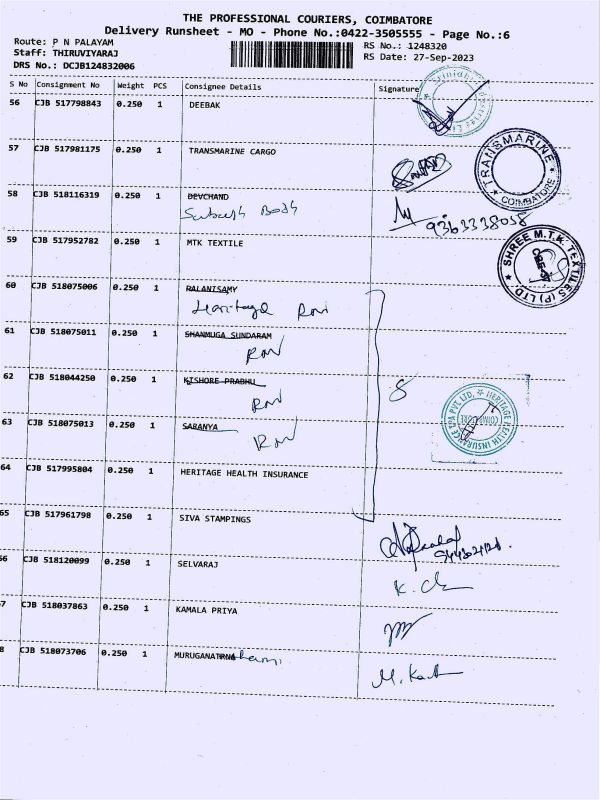 THE PROFESSIONAL COURIERS, COIMBATORE
Delivery Runsheet - MO - Phone No.:0422-3505555 - Page No.:6
Route: P N PALAYAM RS No.: 1248320
Staff: THIRUVIYARAJ RS Date: 27-Sep-2023
DRS No.: DCJB124832006
S No Consignment No Weight PCS Consignee Details Signature
56 CJB 517798843 0.250 1 DEEBAK
57 CJB 517981175 0.250 1 TRANSMARINE CARGO
TRANSMARINE
COIMBATORE
58 CJB 518116319 0.250 1 DEVCHAND
9363338058
59 CJB 517952782 0.250 1 MTK TEXTILE
SHREE M.T.K. TEXTILES (P) LTD
60 CJB 518075006 0.250 1 PALANISAMY
Heritage
61 CJB 518075011 0.250 1 SHANMUGA SUNDARAM
62 CJB 518044250 0.250 1 KISHORE PRABHU
8
63 CJB 518075013 0.250 1 SARANYA
HERITAGE HEALTH INSURANCE TPA PVT. LTD.
64 CJB 517995804 0.250 1 HERITAGE HEALTH INSURANCE
65 CJB 517961798 0.250 1 SIVA STAMPINGS
66 CJB 518120099 0.250 1 SELVARAJ
7 CJB 518037863 0.250 1 KAMALA PRIYA
8 CJB 518073706 0.250 1